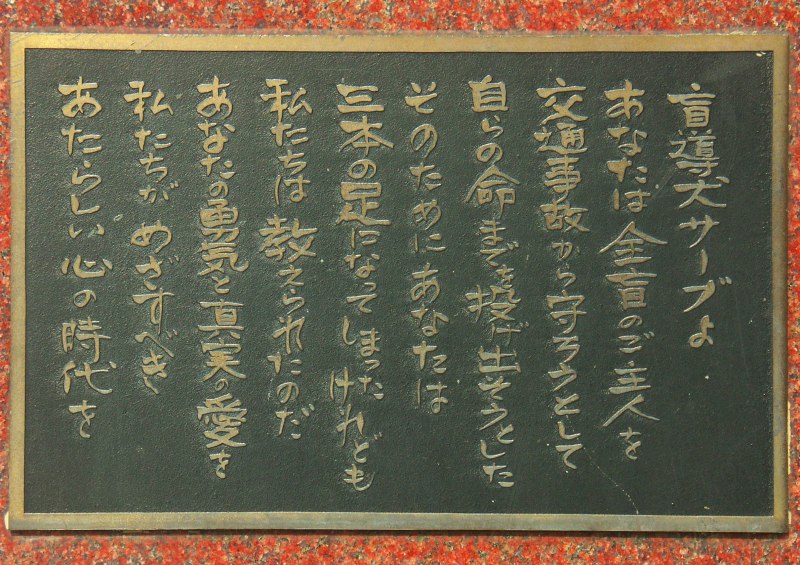 盲導犬サーブよ
あなたは全盲のご主人を
交通事故から守ろうとして
自らの命までを投げ出そうとした
そのためにあなたは
三本の足になってしまったけれども
私たちは教えられたのだ
あなたの勇気と真実の愛を
私たちがめざすべき
あたらしい心の時代を